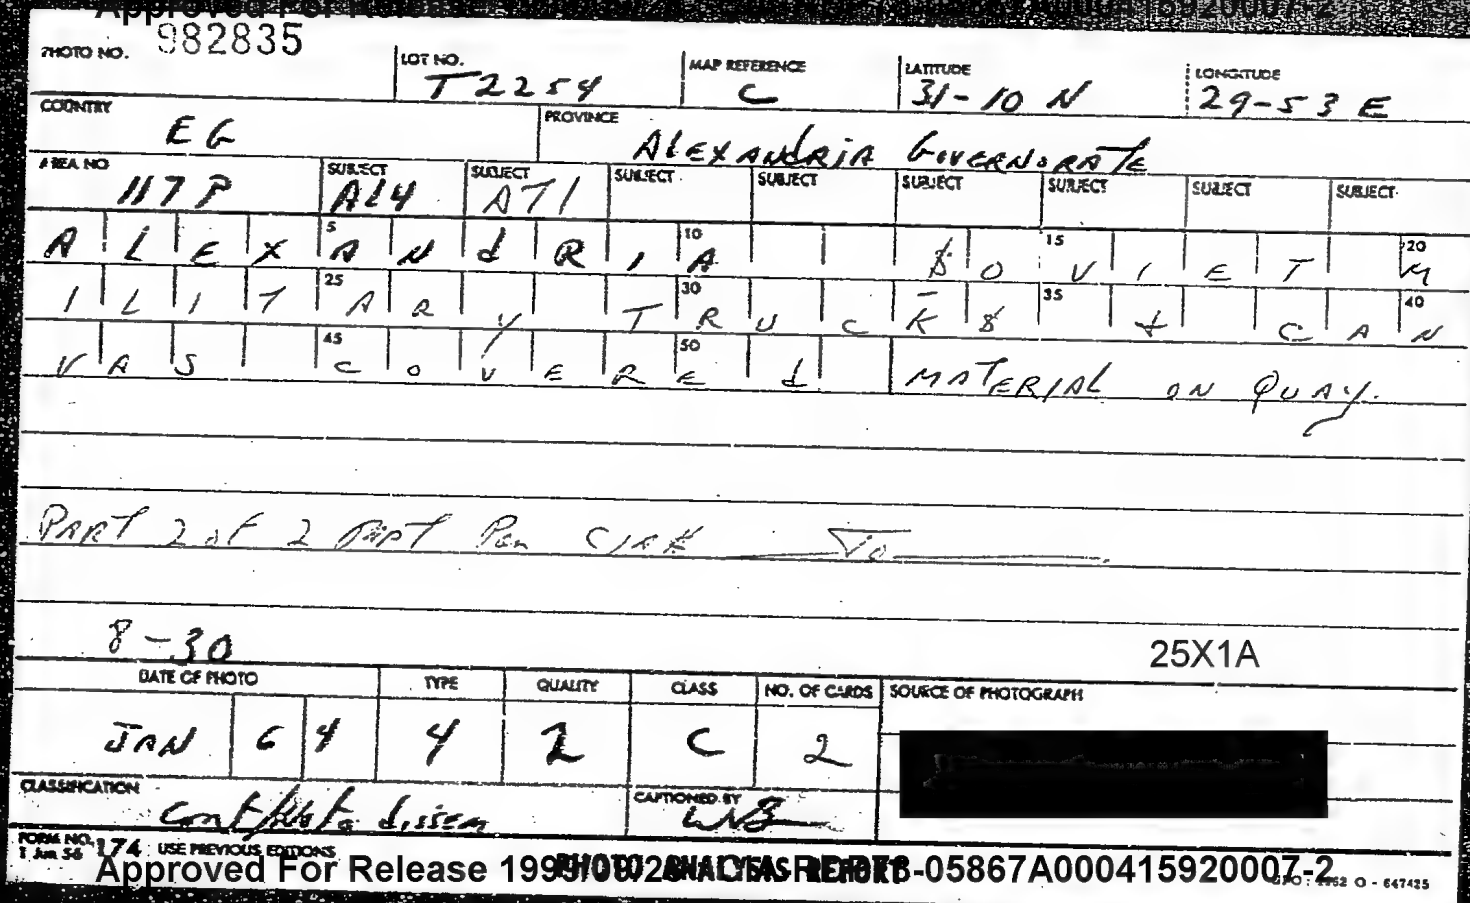 PHOTO NO. 982835
LOT NO. T2254
MAP REFERENCE C
LATITUDE 31-10 N
LONGITUDE 29-53 E
COUNTRY EG
PROVINCE ALEXANdRIA GOVERNORATE
AREA NO 117P
SUBJECT AL4 SUBJECT AT1 SUBJECT SUBJECT SUBJECT SUBJECT SUBJECT SUBJECT
ALEXANdRIA SOVIET M
ILITARY TRUCKS & CAN
VAS COVEREd MATERIAL ON QUAY.
PART 2 of 2 PART Pan
8-30
25X1A
DATE OF PHOTO TYPE QUALITY CLASS NO. OF CARDS SOURCE OF PHOTOGRAPH
JAN 64 4 2 C 2
CLASSIFICATION dissem
CAPTIONED BY WB
FORM NO. 174 USE PREVIOUS EDITIONS
1 Jun 56
PHOTO ANALYSIS REPORT
Approved For Release 1999/09/26 -05867A000415920007-2
GPO : 1962 O - 647425